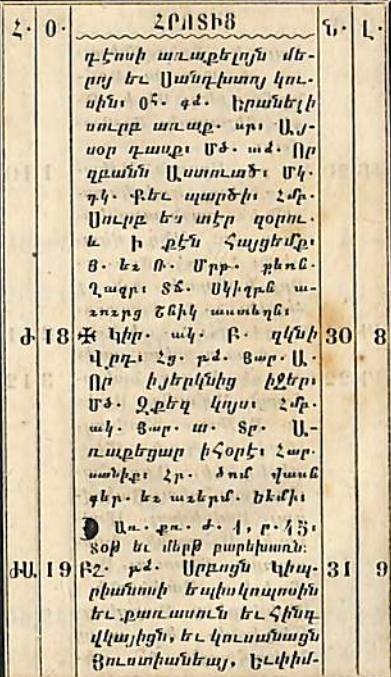 Հ· Օ· ՀՐՈՏԻՑ Ն· Լ·
դէոսի առաքելոյն մե-
րոյ եւ Սանդխտոյ կու-
սին։ Օհ· գձ· Երանելի
սուրբ առաք· սր։ Այ-
սօր դասք։ Մծ· ամ· Որ
զբանն Աստուած։ Մկ·
դկ· Քեւ պարծի։ Համբ·
Սուրբ ես տէր զօրու·
և Ի քէն Հայցեմք։
Յ· եւ Ռ· Մրթ· քհոն·
Ղազր։ Տճ· Սկիզբն ա-
ծնիկ աստեղն։
Ժ 18 ✠ Կիր· ակ· Բ· զկնի 30 8
Վրդ։ Հց· բձ· Յար· Ա·
Որ իյերկնից իջեր։
Մծ· Զքեզ կոյս։ Համբ·
ակ· Յար· ա· Տր· Ա-
ռաքեցար իՀօրէ։ Հար·
սանիք։ Հր· ծում վասն
Առ· քռ· Ժ· 1, ր· 45։
Տօթ եւ մերթ բարեխառն։
ԺԱ 19 Բշ· բձ· Սրբոցն Կիպ- 31 9
րիանոսի եպիսկոպոսին
եւ քառասուն եւ Հինգ
վկայիցն, եւ կուսանացն
Յուստիանեայ, Եւփիմ-